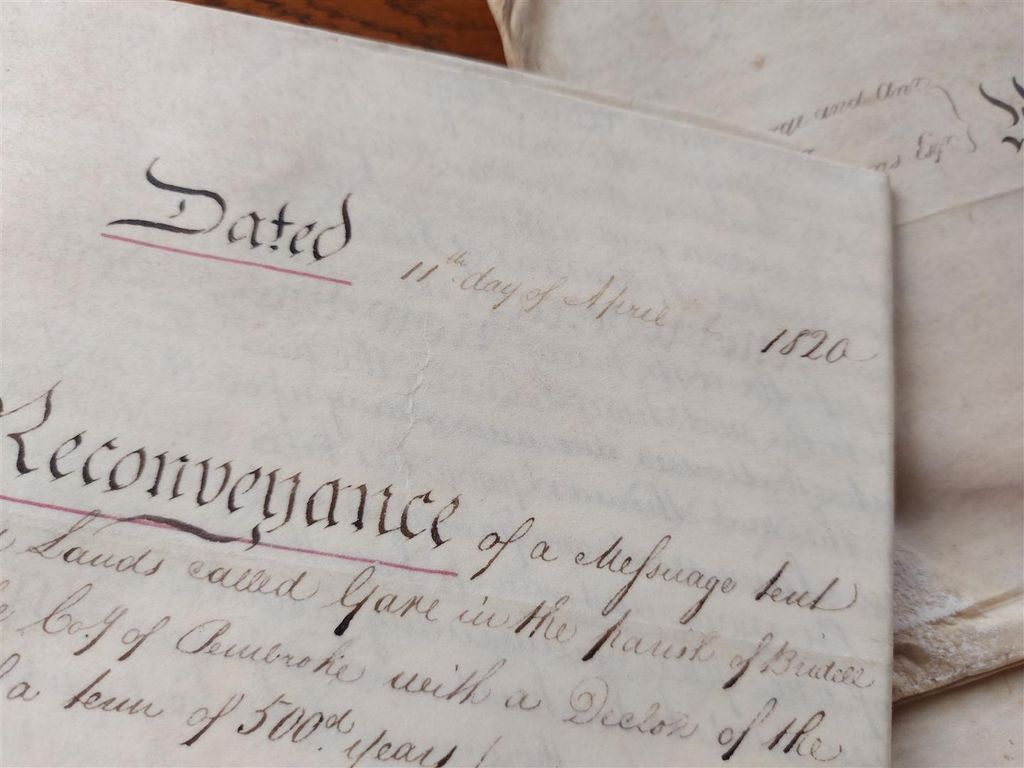 Dated 11th day of April 1820
Reconveyance of a Messuage tent
Lands called Gare in the parish of Bridell
Coy of Pembroke with a Declon of the
a term of 500d years
and Ann
Esqr